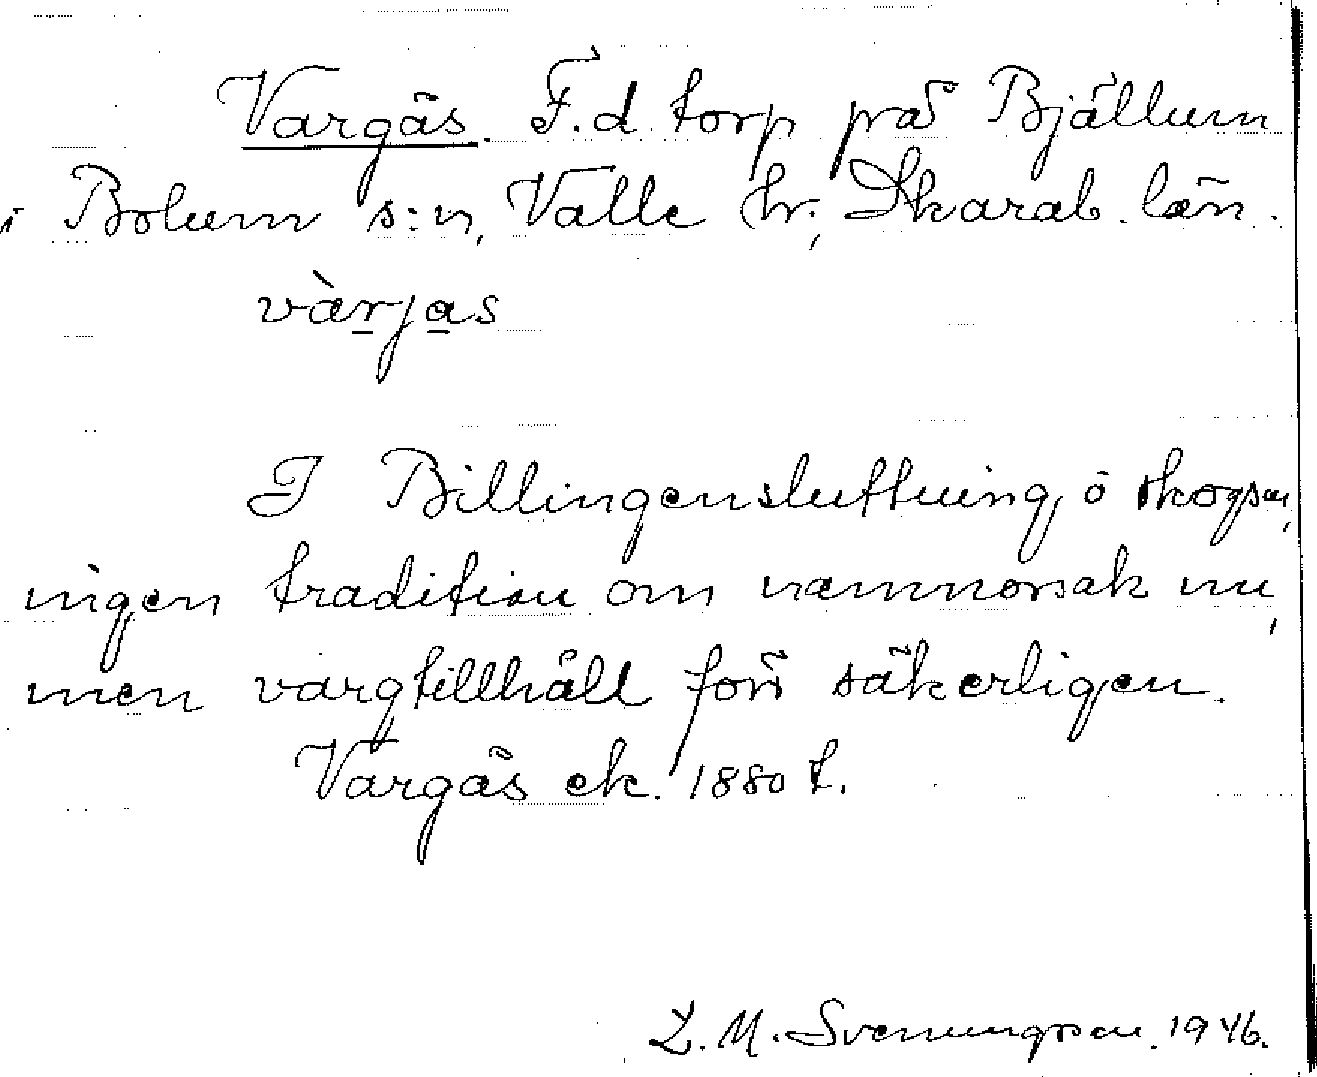 Vargås. F.d torp på Bjällum
i Bolum s:n, Valle hr; Skarab. län.
vàrjas
I Billingensluttning, ö skogen,
ingen tradition om namnorsak nu,
men vargtillhåll förr säkerligen.
Vargås ek. 1880 t.
L. M. Svenungsson. 1946.